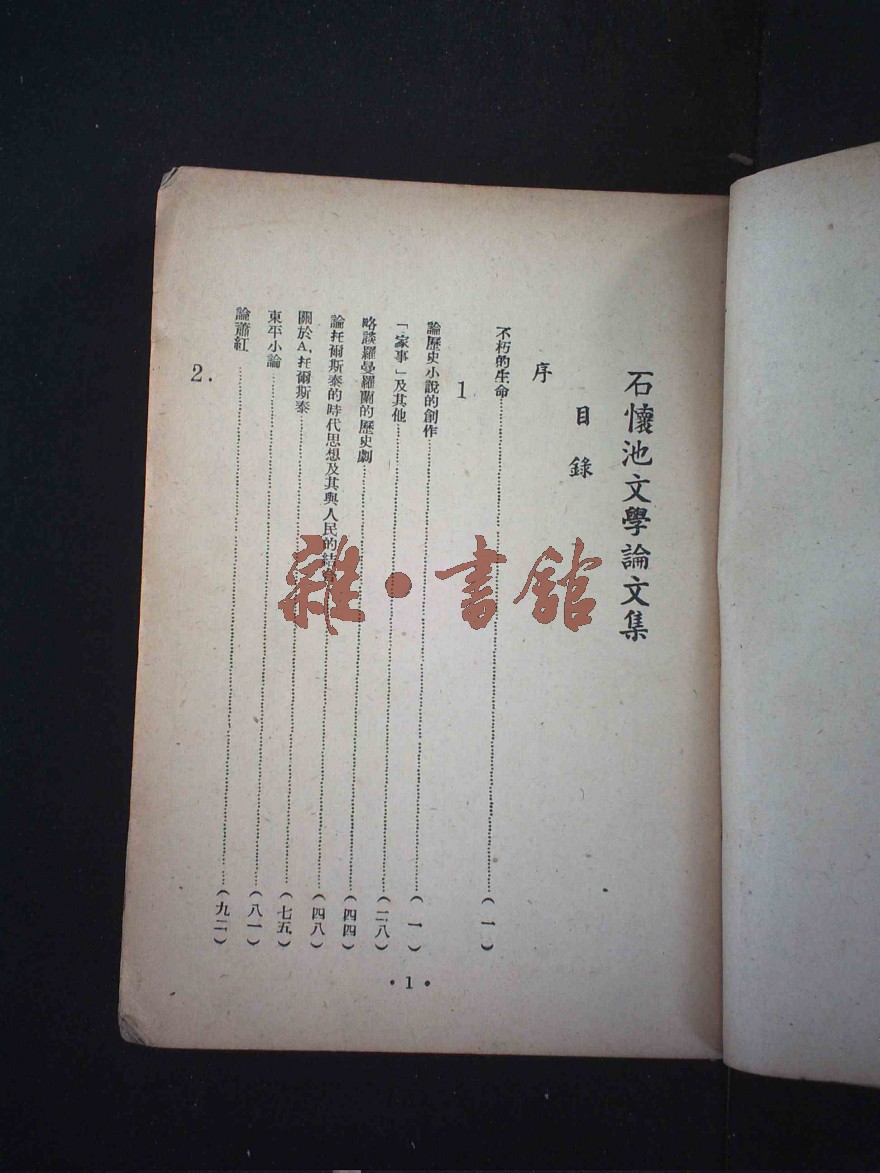 石懷池文學論文集
目錄
序
不朽的生命……(一)
1
論歷史小說的創作……(一)
「家事」及其他……(二八)
略談羅曼羅蘭的歷史劇……(四四)
論托爾斯泰的時代思想及其與人民的結合……(四八)
關於A.托爾斯泰……(七五)
東平小論……(八一)
論蕭紅……(九二)
2.
•1•
雜•書館